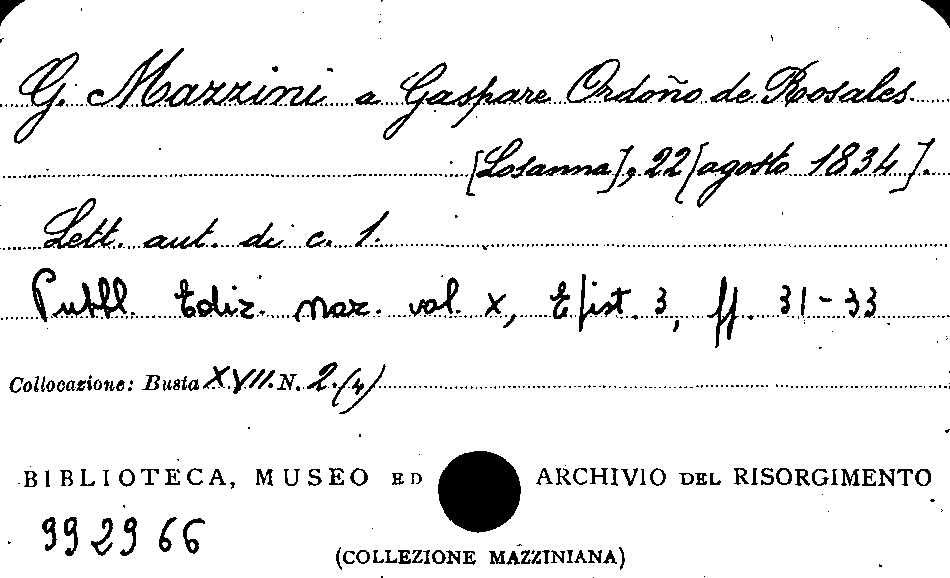 G. Mazzini a Gaspare Ordoño de Rosales.
[Losanna], 22 [agosto 1834].
Lett. aut. di c. 1.
Pubbl. Ediz. naz. vol. X, Epist. 3, pp. 31-33
Collocazione: Busta XVII. N. 2.(4)
BIBLIOTECA, MUSEO ED ARCHIVIO DEL RISORGIMENTO
992966
(COLLEZIONE MAZZINIANA)